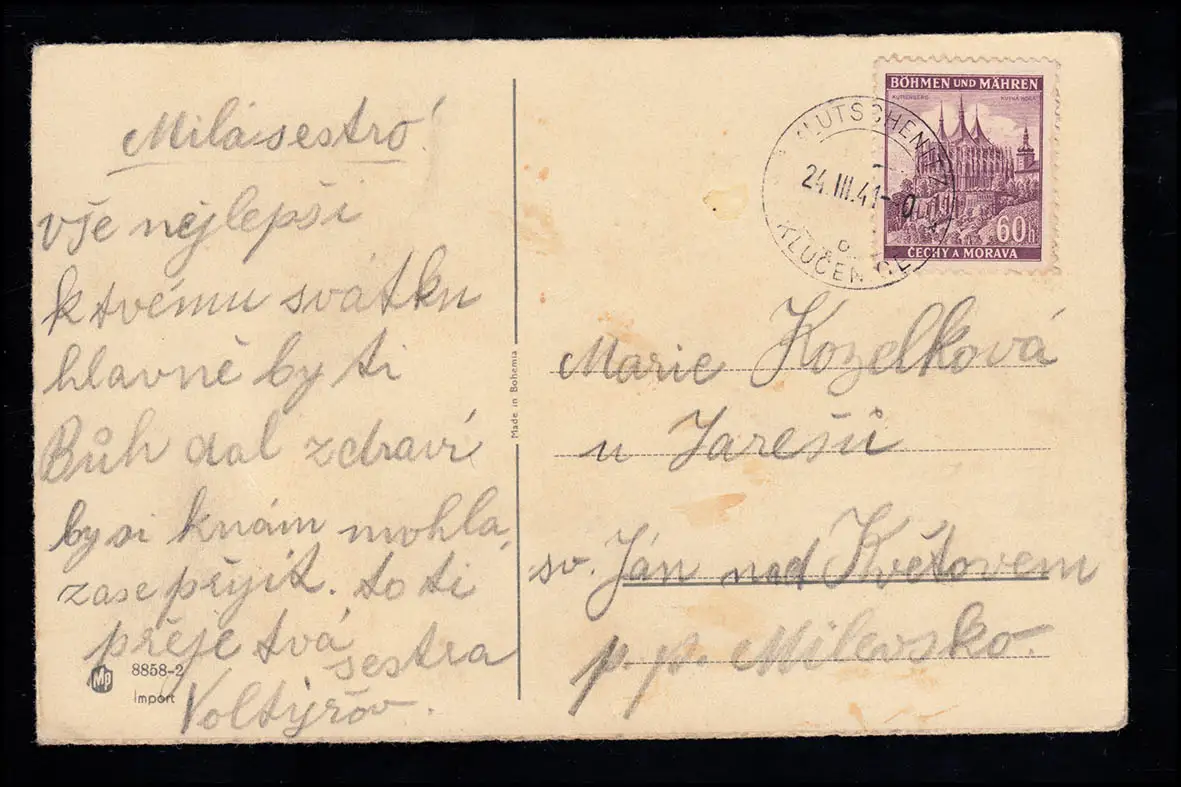 Milá sestro!
vše nejlepši
k tvému svátku
hlavně by ti
Bůh dal zdraví
by si knám mohla,
zase přijít. to ti
přeje tvá
sestra
Voltýřov.
MB
8858-2
Import
Made in Bohemia
BÖHMEN UND MÄHREN
KUTTENBERG KUTNÁ HORA
60h
ČECHY A MORAVA
24.III.41-
KLUČENICE
Marie Kozelková
u Jarešů
sv. Ján nad Květovem
p. p. Milevsko.